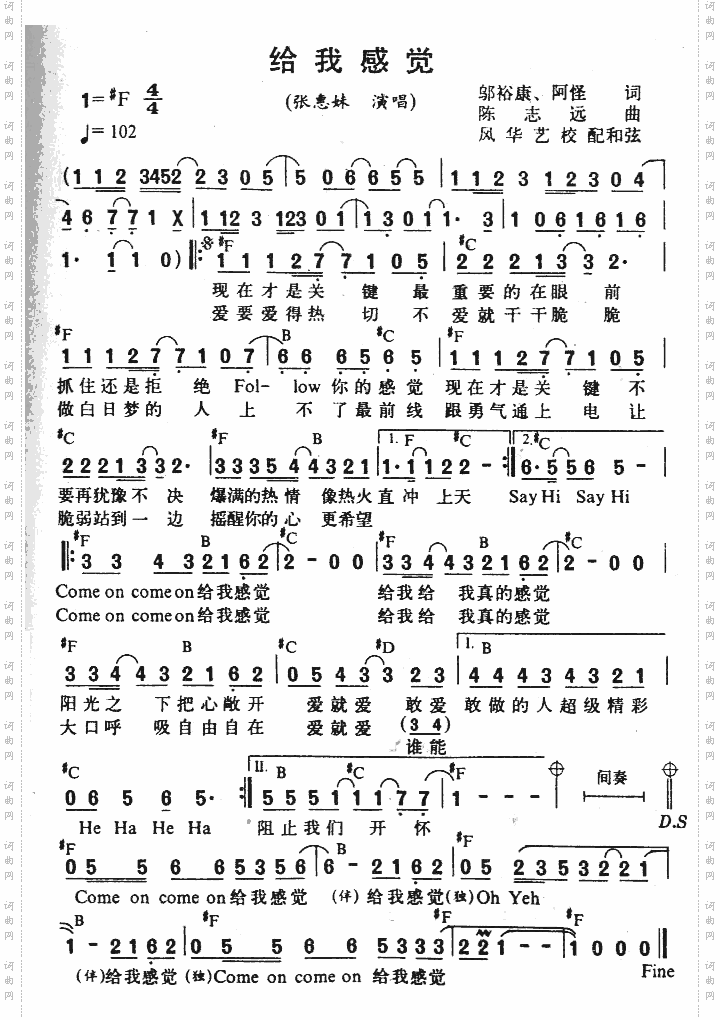 给我感觉
1=#F 4/4
(张惠妹 演唱)
邬裕康、阿怪 词
♩=102
陈志远 曲
风华艺校 配和弦
(1 1 2 3452 2 3 0 5 | 5 0 6 6 5 5 | 1 1 2 3 1 2 3 0 4 |
4 6 7 7 1 X | 1 12 3 123 0 1 | 1 3 0 1 1· 3 | 1 0 6 1 6 1 6 |
#F #C
1· 1 1 0) ‖: 1 1 1 2 7 7 1 0 5 | 2 2 2 1 3 3 2· |
现在才是关 键 最 重要的在眼 前
爱要爱得热 切 不 爱就干干脆 脆
#F B #C #F
1 1 1 2 7 7 1 0 7 | 6 6 6 5 6 5 | 1 1 1 2 7 7 1 0 5 |
抓住还是拒 绝 Fol- low你的感觉 现在才是关 键 不
做白日梦的 人 上 不了最前线 跟勇气通上 电 让
#C #F B 1. F #C 2. #C
2 2 2 1 3 3 2· | 3 3 3 5 4 4 3 2 1 | 1· 1 1 2 2 - :‖ 6· 5 5 6 5 - |
要再犹豫不 决 爆满的热情 像热火直冲 上天 Say Hi Say Hi
脆弱站到一 边 摇醒你的心 更希望
#F B #C #F B #C
‖: 3 3 4 3 2 1 6 2 | 2 - 0 0 | 3 3 4 4 3 2 1 6 2 | 2 - 0 0 |
Come on come on 给我感觉 给我给 我真的感觉
Come on come on 给我感觉 给我给 我真的感觉
#F B #C #D I. B
3 3 4 4 3 2 1 6 2 | 0 5 4 3 3 2 3 | 4 4 4 3 4 3 2 1 |
阳光之 下把心敞开 爱就爱 敢爱 敢做的人超级精彩
大口呼 吸自由自在 爱就爱 (3 4)
谁能
#C II. B #C #F
0 6 5 6 5· :‖ 5 5 5 1 1 1 7 7 | 1 - - - 间奏
He Ha He Ha 阻止我们 开 怀 D.S
#F B
0 5 5 6 6 5 3 5 6 | 6 - 2 1 6 2 | 0 5 2 3 5 3 2 2 1 |
Come on come on 给我感觉 (伴) 给我感觉(独)Oh Yeh
B #F #F #F
1 - 2 1 6 2 | 0 5 5 6 6 5 3 3 3 | 2 2 1 - - | 1 0 0 0 ‖
(伴)给我感觉 (独)Come on come on 给我感觉 Fine
词曲网